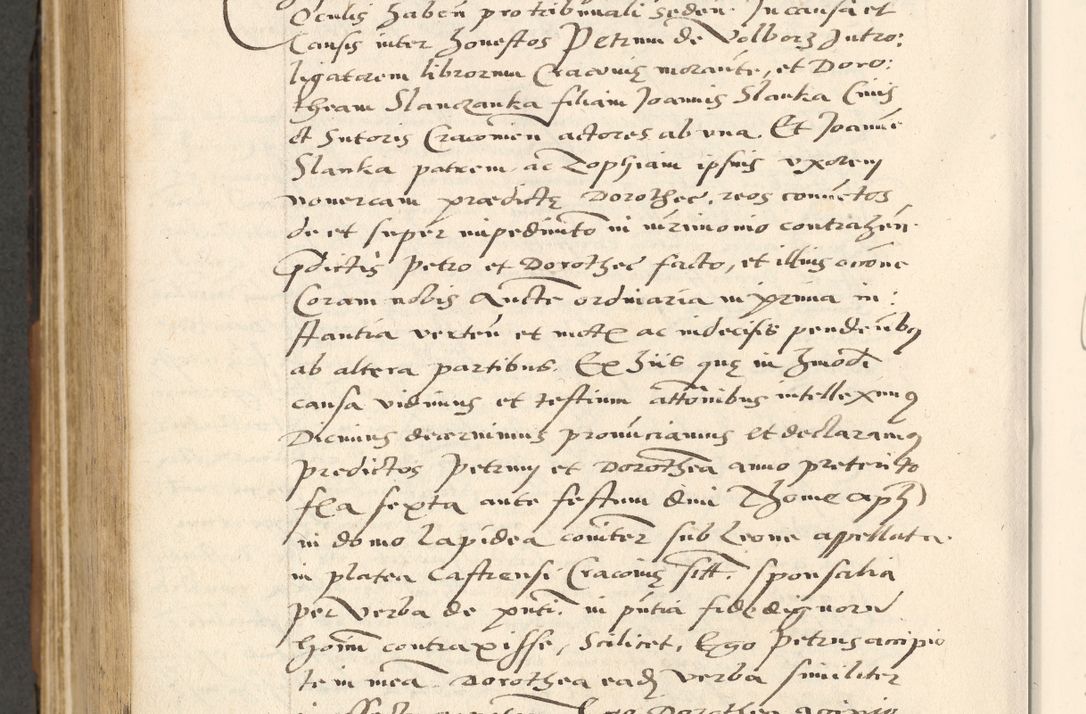 Oculis haben pro tribunali seden. In causa et
Causis inter honestos Petrum de Volborz Intro:
ligatorem librorum Cracovię morante, et Doro:
theam Slanczanka filiam Joannis Slanka Civis
et Sutoris Cracovien actores ab una. Et Joanne
Slanka patrem ac Zophiam ipsius uxorem
novercam prædictę Dorotheę, reos conventos
de et super impedimto in mrimonio contrahen.
pdictis Petro et Dorothee facto, et illius occone
Coram nobis aucte ordinaria in prima in:
stantia verten et motę ac indecisis pendentibus
ab altera partibus. Ex hiis quę in hmodi
causa vidimus et testium attonibus intelleximus
Dicimus decernimus pronunciamus et declaramus
predictos Petrum et Dorothea anno preterito
fla sexta ante festum divi Thome apli
in domo lapidea comiter sub Leone appellata
in platea Castrensi Cracovię sitt. sponsalia
per verba de pnti. in pntia fidedignoru
homi contraxisse, Scilicet, Ego Petrus accipio
te in mea. Dorothea eadz verba similiter
Ego Dorothea accipio